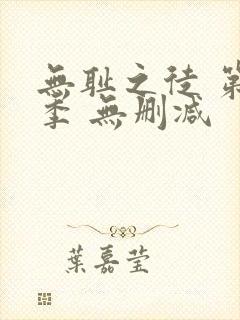 無耻之徒 第
季 無删减
葉嘉莹